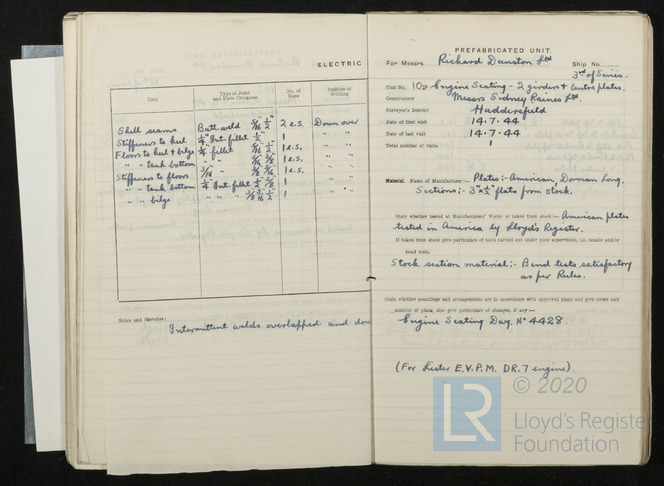 ELECTRIC
Item
Type of Joint and Plate Thickness
No. of Runs
Position of Welding
Shell seams Butt weld 5/16 1/2" 2 e.s. Down over
Stiffeners to keel 1/4" Int fillet 1/2" 1 " "
Floors to keel & bilge 1/4" fillet 5/16 1/2" 1 e.s. " "
" " tank bottom 1 e.s. " "
Stiffeners to floors 3/16" 1 e.s. " "
" " tank bottom 1/4" Int. fillet 1/2" 3/8 1 " "
" " bilge " " " 1 " "
Notes and Sketches:
Intermittent welds overlapped and
PREFABRICATED UNIT.
For Messrs. Richard Dunston Ltd Ship No.
3rd of Series.
Unit No. 10D Engine Seating - 2 girders & Centre plates.
Constructors Messrs Sidney Raines Ltd.
Surveyor's District Huddersfield
Date of first visit 14.7.44
Date of last visit 14.7.44
Total number of visits 1
Material. Name of Manufacturer:- Plates:- American, Dorman Long.
Sections:- 3" x 1/2" flats from stock.
State whether tested at Manufacturers' Works or taken from stock:- American plates
tested in America by Lloyd's Register.
If taken from stock give particulars of tests carried out under your supervision, i.e. tensile and/or
bend tests.
Stock section material:- Bend tests satisfactory
as per Rules.
State whether scantlings and arrangements are in accordance with approved plans and give name and
number of plans, also give particulars of changes, if any:-
Engine Seating Dwg. No 4428
(For Lister E.V.P.M. DR.7 engine).
© 2020
LR
Lloyd's Register
Foundation